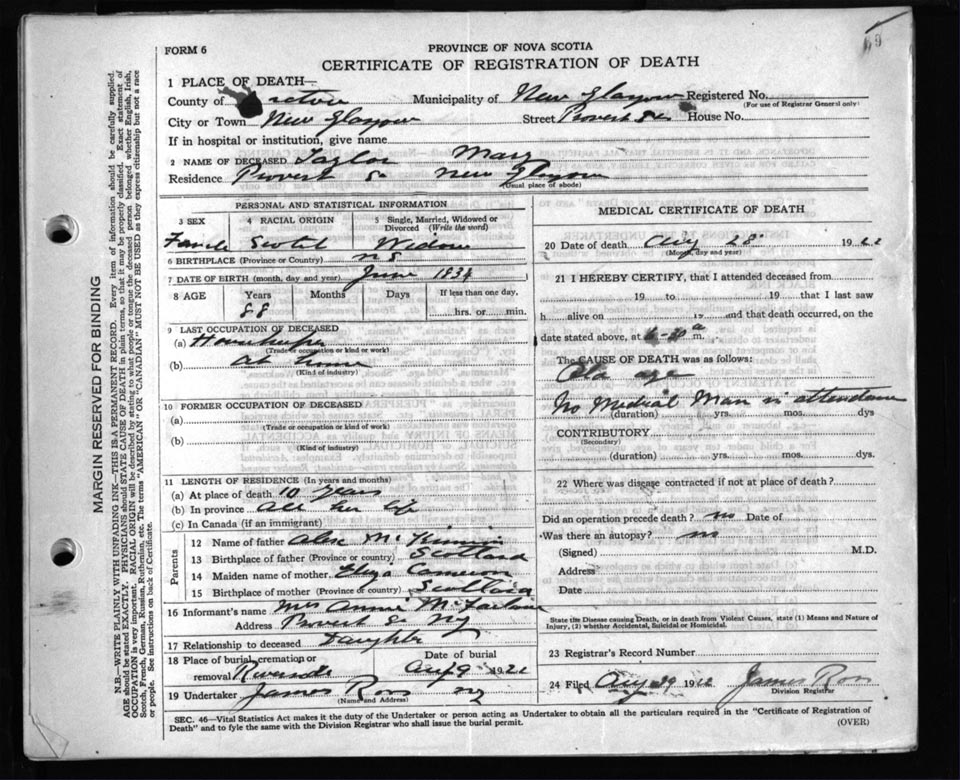 69
FORM 6
PROVINCE OF NOVA SCOTIA
CERTIFICATE OF REGISTRATION OF DEATH
1 PLACE OF DEATH—
County of Pictou Municipality of New Glasgow Registered No.
(For use of Registrar General only)
City or Town New Glasgow Street Provost St. House No.
If in hospital or institution, give name
2 NAME OF DECEASED Taylor Mary
Residence Provost St New Glasgow
(Usual place of abode)
PERSONAL AND STATISTICAL INFORMATION
3 SEX
Female
4 RACIAL ORIGIN
Scotch
5 Single, Married, Widowed or Divorced (Write the word)
Widow
6 BIRTHPLACE (Province or Country) N S
7 DATE OF BIRTH (month, day and year) June 1834
8 AGE Years Months Days If less than one day,
88 hrs. or min.
9 LAST OCCUPATION OF DECEASED
(a) Housekeeper
(Trade or occupation or kind or work)
(b) At home
(Kind of industry)
10 FORMER OCCUPATION OF DECEASED
(a)
(Trade or occupation or kind or work)
(b)
(Kind of industry)
11 LENGTH OF RESIDENCE (In years and months)
(a) At place of death 10 years
(b) In province all her life
(c) In Canada (if an immigrant)
Parents
12 Name of father Alex
13 Birthplace of father (Province or country) Scotland
14 Maiden name of mother Eliza Cameron
15 Birthplace of mother (Province or country) Scotland
16 Informant's name Mrs Annie McFarlane
Address Provost St NG
17 Relationship to deceased Daughter
18 Place of burial, cremation or removal Riverside
Date of burial
Aug 1922
19 Undertaker James Ross NG
(Name and Address)
MEDICAL CERTIFICATE OF DEATH
20 Date of death Aug 28 1922
(Month, day and year)
21 I HEREBY CERTIFY, that I attended deceased from
19 to 19 that I last saw
h alive on 19 and that death occurred, on
date stated above, at 6-30 a m.
The CAUSE OF DEATH was as follows:
Old age
No Medical Man in attendance
(duration) yrs. mos. dys
CONTRIBUTORY
(Secondary)
(duration) yrs. mos. dys.
22 Where was disease contracted if not at place of death?
Did an operation precede death? no Date of
Was there an autopsy? no
(Signed) M.D.
Address
Date
State the Disease causing Death, or in death from Violent Causes, state (1) Means and Nature of Injury, (2) whether Accidental, Suicidal or Homicidal.
23 Registrar's Record Number
24 Filed Aug 29 1922 James Ross
Division Registrar
SEC. 46—Vital Statistics Act makes it the duty of the Undertaker or person acting as Undertaker to obtain all the particulars required in the "Certificate of Registration of
Death" and to fyle the same with the Division Registrar who shall issue the burial permit.
(OVER)
MARGIN RESERVED FOR BINDING
N.B.—WRITE PLAINLY WITH UNFADING INK—THIS IS A PERMANENT RECORD. Every item of information should be carefully supplied.
AGE should be stated EXACTLY. PHYSICIANS should STATE CAUSE OF DEATH in plain terms, so that it may be properly classified. Exact statement of
OCCUPATION is very important. RACIAL ORIGIN will be described by stating to what people or tongue the deceased person belonged whether English, Irish,
Scotch, French, German, Russian, Ruthenian, etc. The terms "AMERICAN" OR "CANADIAN" MUST NOT BE USED as they express citizenship but not a race
or people. See instructions on back of Certificate.